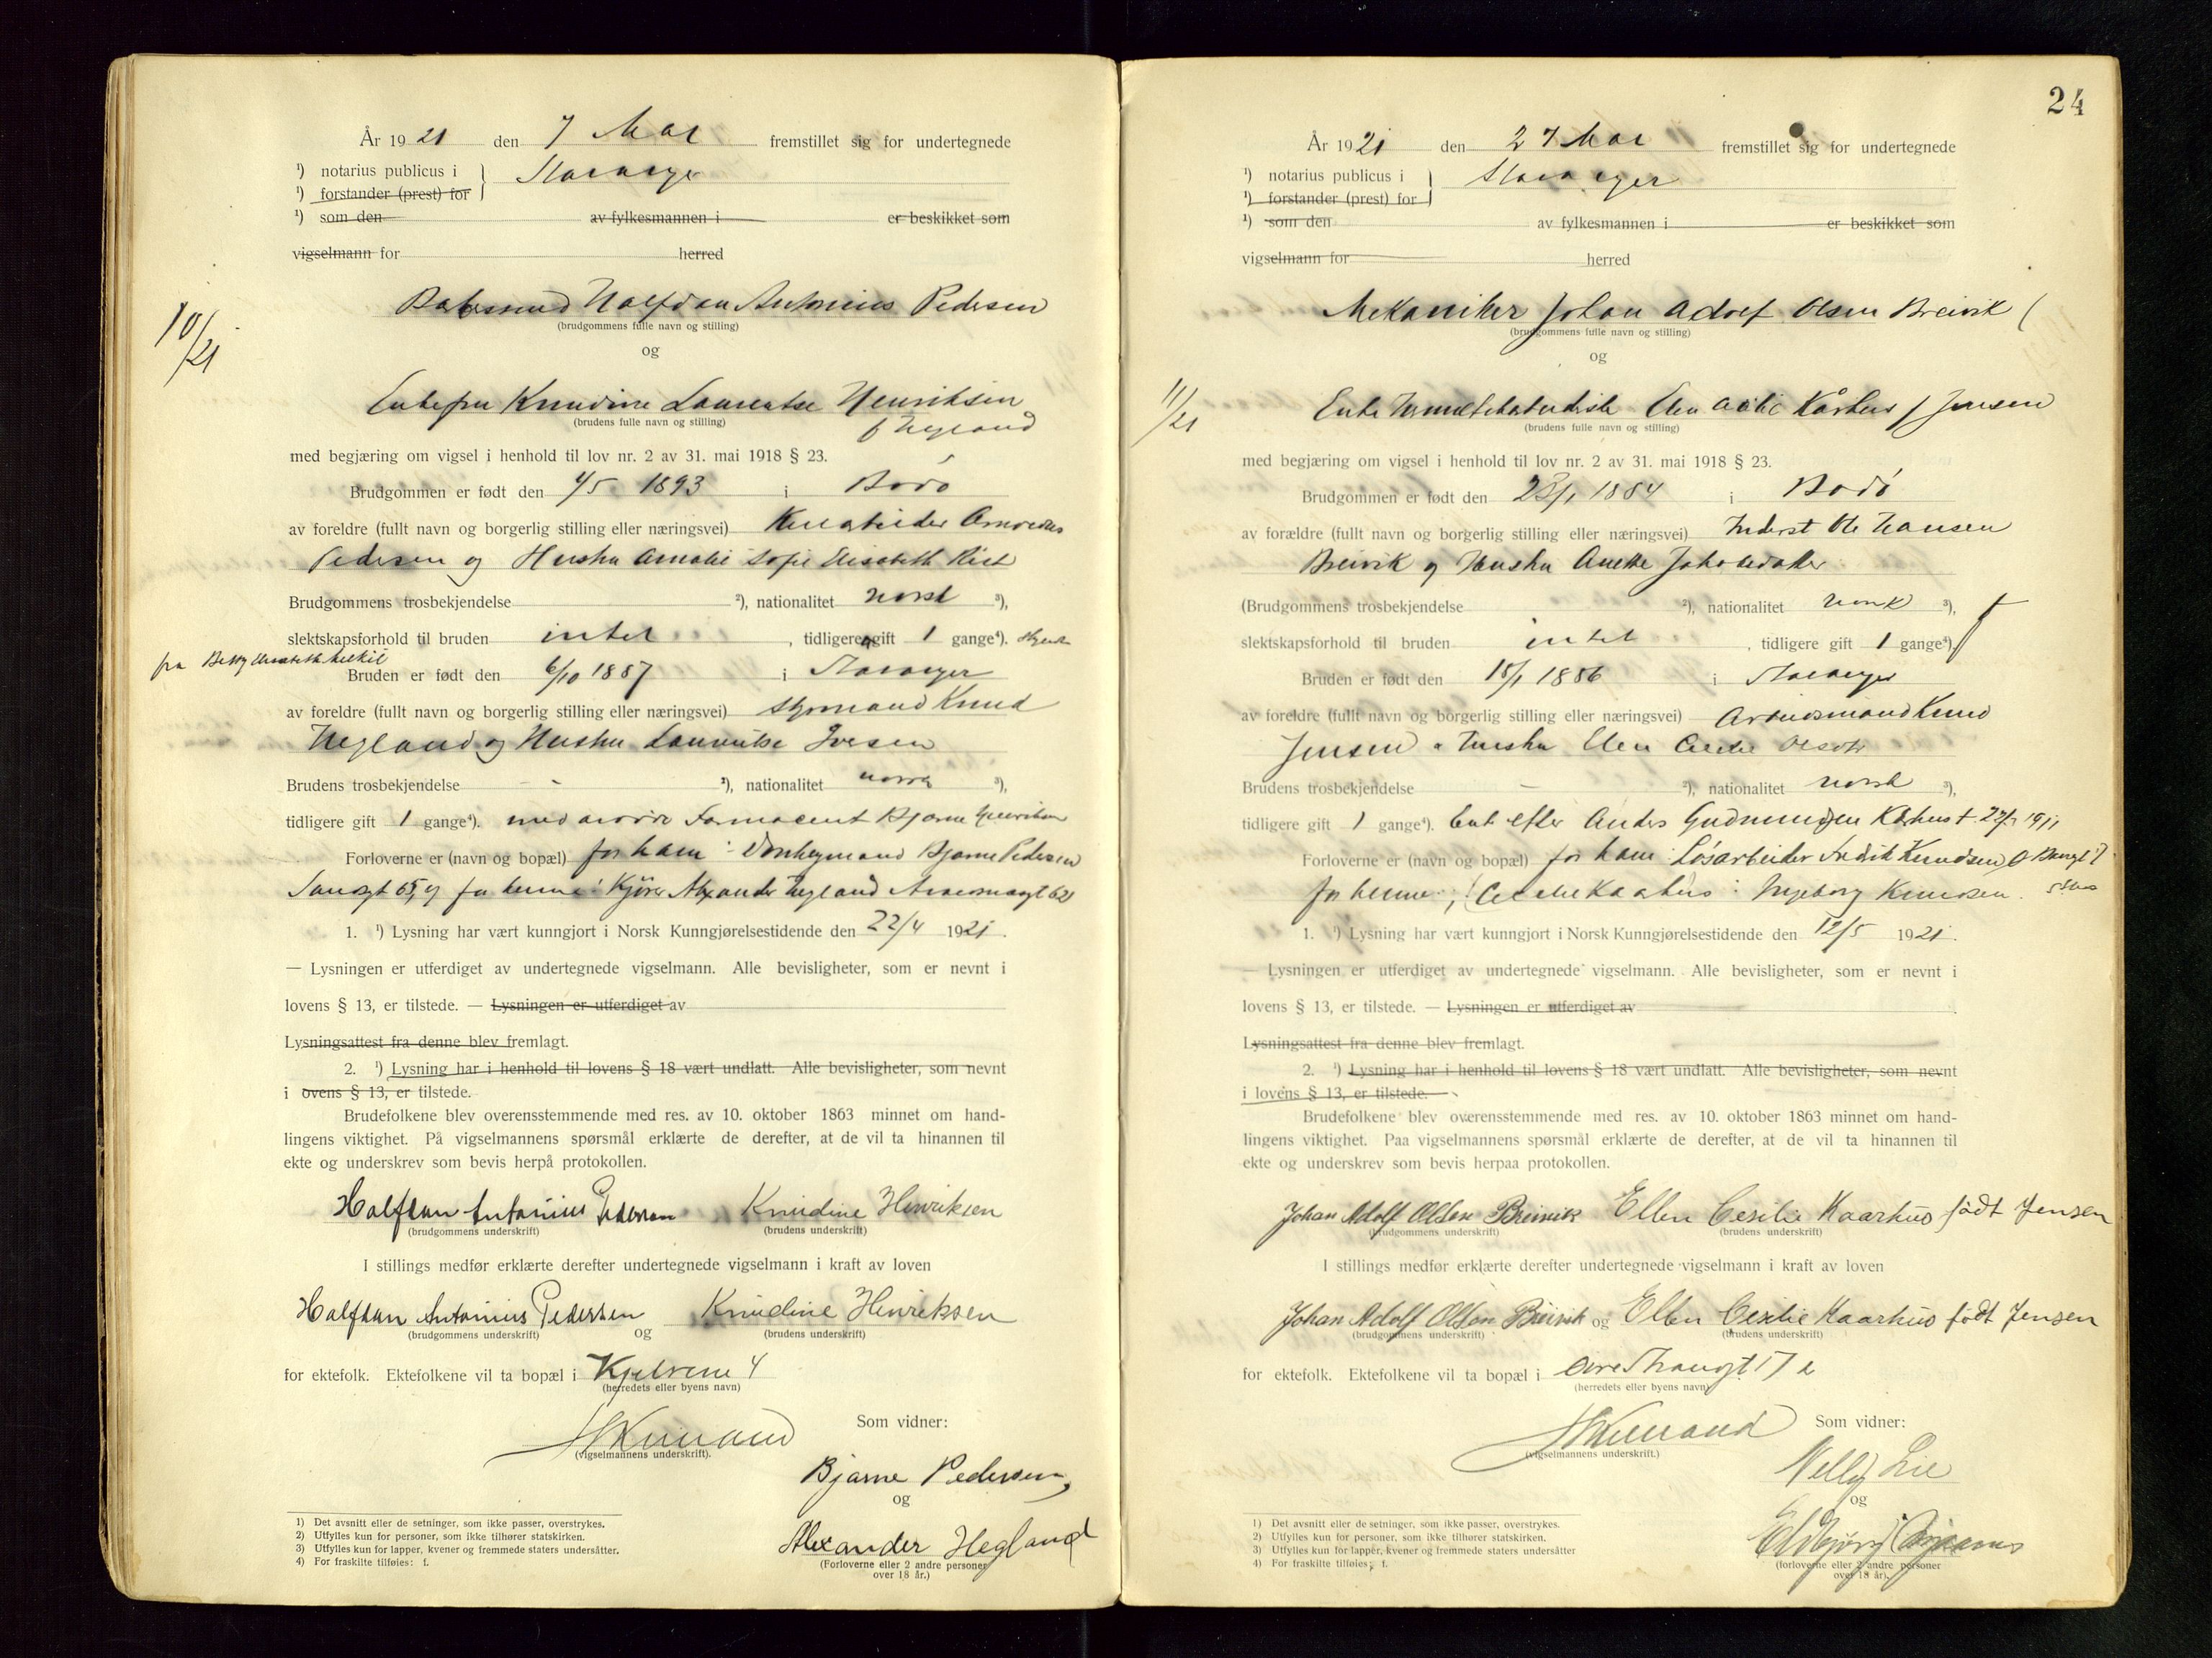 År 1921 den 7 Mai fremstillet sig for undertegnede
¹) notarius publicus i Stavanger
¹) forstander (prest) for
¹) som den av fylkesmannen i er beskikket som
vigselmann for herred
10/21
Halfdan Antonius Pedersen
(brudgommens fulle navn og stilling)
og
Enkefru Knudine Lauentse Henriksen
(brudens fulle navn og stilling)
f Hegland
med begjæring om vigsel i henhold til lov nr. 2 av 31. mai 1918 § 23.
Brudgommen er født den 4/5 1893 i Bodö
av foreldre (fullt navn og borgerlig stilling eller næringsvei)
Pedersen og Hustru Amalie Sofie Elisabeth
Brudgommens trosbekjendelse ²), nationalitet norsk ³),
slektskapsforhold til bruden intet , tidligere gift 1 gange⁴).
fra Betty Elisabeth
Bruden er født den 6/10 1887 i Stavanger
av foreldre (fullt navn og borgerlig stilling eller næringsvei) Styrmand Knud
Hegland og Hustru Lauentse Ivesen
Brudens trosbekjendelse - ²), nationalitet norsk ³),
tidligere gift 1 gange⁴). med Bjarne Henriksen
Forloverne er (navn og bopæl) for ham: Bjarne Pedersen
65, og for henne: Kjører Alexander Hegland 62
1. ¹) Lysning har vært kunngjort i Norsk Kunngjørelsestidende den 22/4 1921.
— Lysningen er utferdiget av undertegnede vigselmann. Alle bevisligheter, som er nevnt i
lovens § 13, er tilstede. — Lysningen er utferdiget av
Lysningsattest fra denne blev fremlagt.
2. ¹) Lysning har i henhold til lovens § 18 vært undlatt. Alle bevisligheter, som nevnt
i ovens § 13, er tilstede.
Brudefolkene blev overensstemmende med res. av 10. oktober 1863 minnet om hand-
lingens viktighet. På vigselmannens spørsmål erklærte de derefter, at de vil ta hinannen til
ekte og underskrev som bevis herpå protokollen.
Halfdan Antonius Pedersen Knudine Henriksen
(brudgommens underskrift) (brudens underskrift)
I stillings medfør erklærte derefter undertegnede vigselmann i kraft av loven
Halfdan Antonius Pedersen og Knudine Henriksen
(brudgommens underskrift) (brudens underskrift)
for ektefolk. Ektefolkene vil ta bopæl i Kjelvene 4
(herredets eller byens navn)
(vigselmannens underskrift).
Som vidner:
Bjarne Pedersen
og
Alexander Hegland
(Forloverne eller 2 andre personer
over 18 år.)
1) Det avsnitt eller de setninger, som ikke passer, overstrykes.
2) Utfylles kun for personer, som ikke tilhører statskirken.
3) Utfylles kun for lapper, kvener og fremmede staters undersåtter.
4) For fraskilte tilføies: f.
24
År 1921 den 27 Mai fremstillet sig for undertegnede
¹) notarius publicus i Stavanger
¹) forstander (prest) for
¹) som den av fylkesmannen i er beskikket som
vigselmann for herred
Mekaniker Johan Adolf Olsen Breivik
(brudgommens fulle navn og stilling)
og
11/21
Enke Kårhus f Jensen
(brudens fulle navn og stilling)
med begjæring om vigsel i henhold til lov nr. 2 av 31. mai 1918 § 23.
Brudgommen er født den 23/1 1884 i Bodö
av forældre (fullt navn og borgerlig stilling eller næringsvei) Inderst Ole Hansen
Breivik og Hustru Anette
(Brudgommens trosbekjendelse ²), nationalitet norsk ³),
slektskapsforhold til bruden intet , tidligere gift 1 gange⁴). f
Bruden er født den 18/1 1886 i Stavanger
av foreldre (fullt navn og borgerlig stilling eller næringsvei) Arbeidsmand Knud
Jensen og Hustru
Brudens trosbekjendelse - ²), nationalitet norsk ³),
tidligere gift 1 gange⁴). Enke efter Anders Gudmundsen Kårhus
Forloverne er (navn og bopæl) for ham: Løsarbeider Fredrik Knudsen
for henne: Cecilie Kaarhus: Ingeborg Knudsen.
1. ¹) Lysning har vært kunngjort i Norsk Kunngjørelsestidende den 12/5 1921.
— Lysningen er utferdiget av undertegnede vigselmann. Alle bevisligheter, som er nevnt i
lovens § 13, er tilstede. — Lysningen er utferdiget av
Lysningsattest fra denne blev fremlagt.
2. ¹) Lysning har i henhold til lovens § 18 vært undlatt. Alle bevisligheter, som nevnt
i lovens § 13, er tilstede.
Brudefolkene blev overensstemmende med res. av 10. oktober 1863 minnet om hand-
lingens viktighet. Paa vigselmannens spørsmål erklærte de derefter, at de vil ta hinannen til
ekte og underskrev som bevis herpaa protokollen.
Johan Adolf Olsen Breivik Ellen Cesilie Kaarhus født Jensen
(brudgommens underskrift) (brudens underskrift)
I stillings medfør erklærte derefter undertegnede vigselmann i kraft av loven
Johan Adolf Olsen Breivik og Ellen Cesilie Kaarhus født Jensen
(brudgommens underskrift) (brudens underskrift)
for ektefolk. Ektefolkene vil ta bopæl i
(herredets eller byens navn)
(vigselmannens underskrift.)
Som vidner:
Nelly Lie
og
(forloverne eller 2 andre personer
over 18 år).
1) Det avsnitt eller de setninger, som ikke passer, overstrykes.
2) Utfylles kun for personer, som ikke tilhører statskirken.
3) Utfylles kun for lapper, kvener og fremmede staters undersåtter
4) For fraskilte tilføies; f.